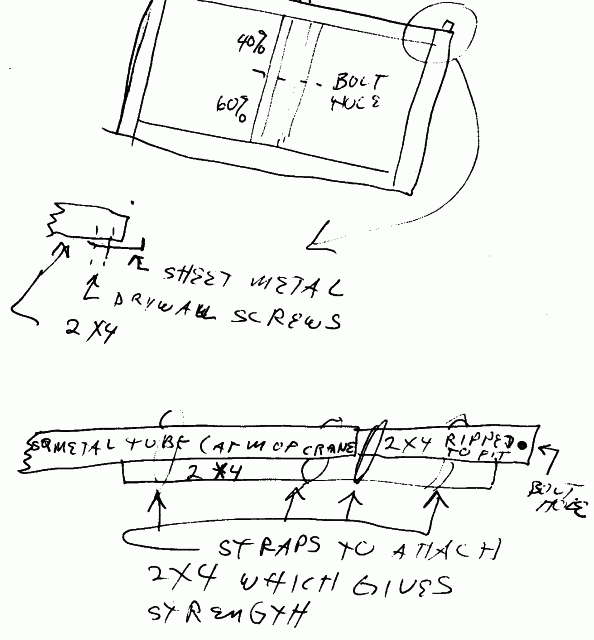 40%
60%
BOLT
HOLE
SHEET METAL
DRYWALL SCREWS
2X4
SQ METAL TUBE (ARM OF CRANE
2X4 RIPPED
TO FIT
2X4
BOLT
HOLE
STRAPS TO ATTACH
2X4 WHICH GIVES
STRENGTH